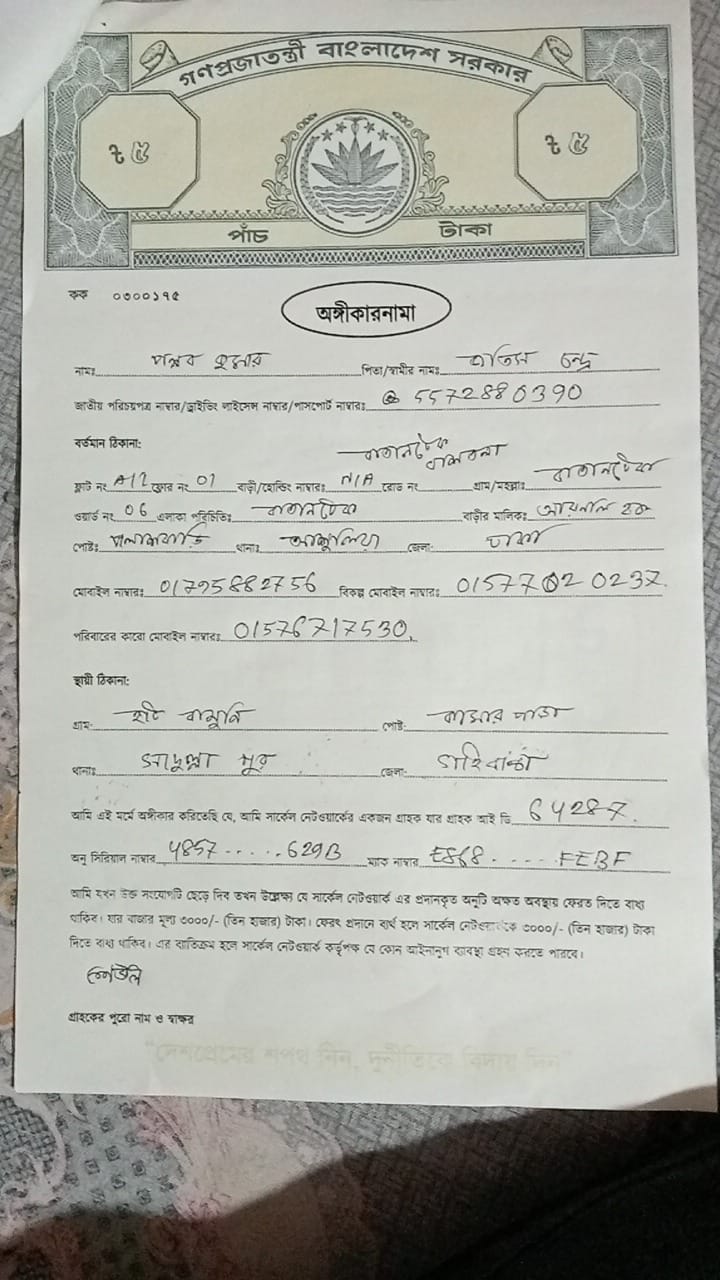 গণপ্রজাতন্ত্রী বাংলাদেশ সরকার
৳ ৫ ৳ ৫
পাঁচ টাকা
কক ০৩০০১৭৫
অঙ্গীকারনামা
নামঃ পল্লব কুমার পিতা/স্বামীর নামঃ চন্দ্র
জাতীয় পরিচয়পত্র নাম্বার/ড্রাইভিং লাইসেন্স নাম্বার/পাসপোর্ট নাম্বারঃ 5572880390
বর্তমান ঠিকানা:
ফ্লাট নং A/2 ফ্লোর নং 01 বাড়ী/হোল্ডিং নাম্বারঃ N/A রোড নং গ্রাম/মহল্লাঃ
ওয়ার্ড নং 06 এলাকা পরিচিতিঃ বাড়ীর মালিকঃ
পোষ্টঃ পলাশবাড়ি থানাঃ আশুলিয়া জেলা- ঢাকা
মোবাইল নাম্বারঃ 01795882756 বিকল্প মোবাইল নাম্বারঃ 01577020237.
পরিবারের কারো মোবাইল নাম্বারঃ 01576717530.
স্থায়ী ঠিকানা:
গ্রাম- হাট বামুনি পোষ্ট- পাড়া
থানাঃ সাদুল্লা পুর জেলা- গাইবান্ধা
আমি এই মর্মে অঙ্গীকার করিতেছি যে, আমি সার্কেল নেটওয়ার্কের একজন গ্রাহক যার গ্রাহক আই ডি 64287.
অনু সিরিয়াল নাম্বার 4857.....629B ম্যাক নাম্বার E868.....FEBF
আমি যখন উক্ত সংযোগটি ছেড়ে দিব তখন উল্লেক্ষ্য যে সার্কেল নেটওয়ার্ক এর প্রদানকৃত অনুটি অক্ষত অবস্থায় ফেরত দিতে বাধ্য
থাকিব। যার বাজার মূল্য ৩০০০/- (তিন হাজার) টাকা। ফেরৎ প্রদানে ব্যর্থ হলে সার্কেল নেটওয়ার্ককে ৩০০০/- (তিন হাজার) টাকা
দিতে বাধ্য থাকিব। এর ব্যতিক্রম হলে সার্কেল নেটওয়ার্ক কর্তৃপক্ষ যে কোন আইনানুগ ব্যবস্থা গ্রহন করতে পারবে।
গ্রাহকের পুরো নাম ও স্বাক্ষর
"দেশপ্রেমের শপথ নিন, দুর্নীতিকে বিদায় দিন"